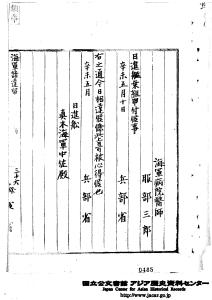 海軍病院醫師
服部三郎
日進艦乗組申付候事
辛未五月十日
兵部省
右之通今日相達候條此旨可被心得候也
辛未五月
兵部省
日進艦
真木海軍中佐殿
国立公文書館 アジア歴史資料センター
Japan Center for Asian Historical Records
http://www.jacar.go.jp
0485